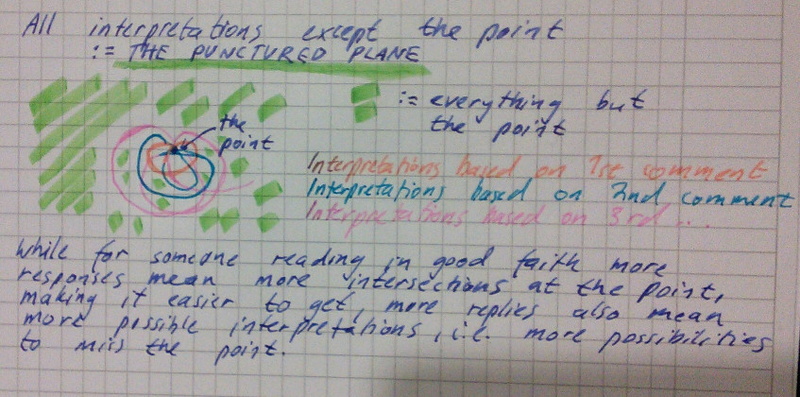 All interpretations except the point
:= THE PUNCTURED PLANE
:= everything but
the point
the
point
Interpretations based on 1st comment
Interpretations based on 2nd comment
Interpretations based on 3rd ...
While for someone reading in good faith more
responses mean more intersections at the point,
making it easier to get, more replies also mean
more possible interpretations, i.e. more possibilities
to miss the point.